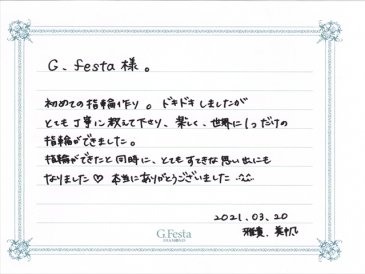 G. festa 様。
初めての指輪作り。ドキドキしましたが
とても丁寧に教えて下さり、楽しく、世界に1つだけの
指輪ができました。
指輪ができたと同時に、とてもすてきな思い出にも
なりました♡ 本当にありがとうございました
2021.03.20
雅貴.美帆
G.Festa
DIAMOND